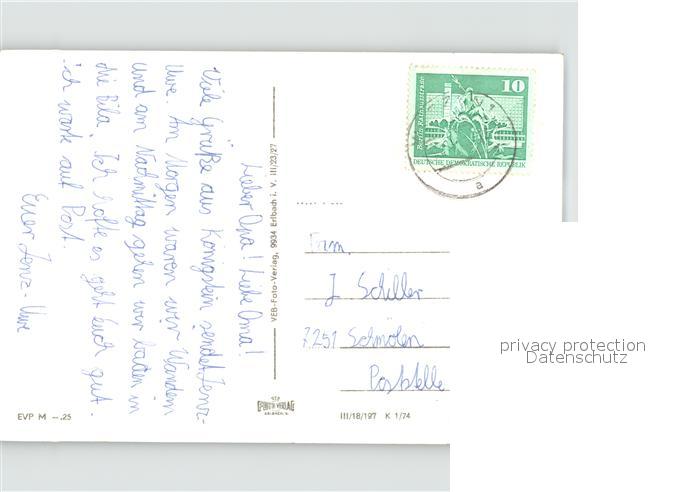 Lieber Opa! Liebe Oma!
Viele Grüße aus Königstein sendet Jenz-
Uwe. Am Morgen waren wir Wandern
und am Nachmittag gehen wir baden in
die Bila. Ich hoffe es geht Euch gut.
ich warte auf Post.
Euer Jenz-Uwe
VEB-Foto-Verlag, 9934 Erlbach i. V. III/23/27
10
DEUTSCHE DEMOKRATISCHE REPUBLIK
a
Fam.
J Schiller
7251 Schmölen
Poststelle
privacy protection
Datenschutz
EVP M -.25
III/18/197 K 1/74